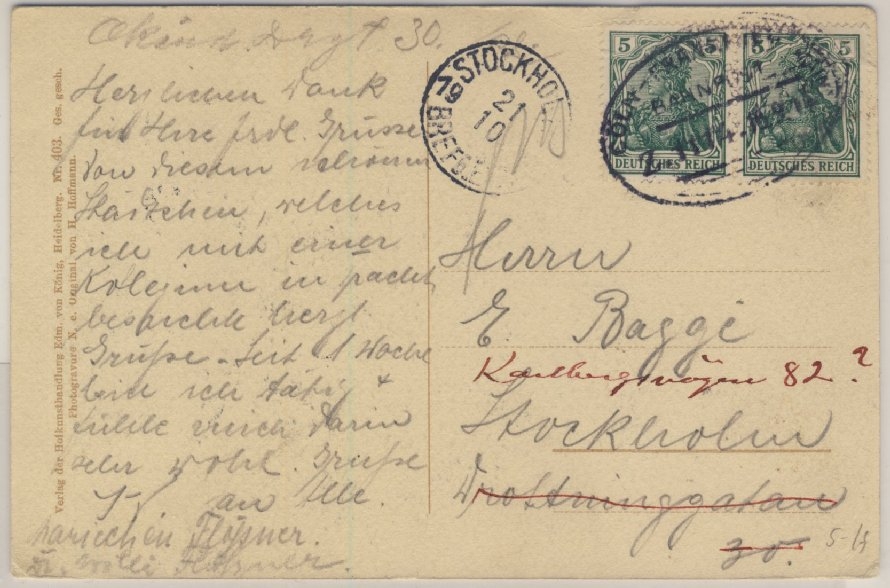 30.
Herzlichen Dank
für Ihre frdl. Grüsse
von diesem schönen
Städtchen, welches
ich mit einer
Kolegin in pracht
besuchte herzl
Grüße. Seit 1 Woche
bin ich tätig &
fühle mich darin
sehr wohl. Grüße
an Alle.
Flössner.
Verlag der Hofkunsthandlung Edm. von König, Heidelberg. Nr. 403. Ges. gesch.
Photogravure N. e. Original von H. Hoffmann.
STOCKHOL
79
21
10
BREFB
5 5
DEUTSCHES REICH
5
DEUTSCHES REICH
CÖLN
BAHNPOST
Herrn
E Baggé
Karlbergsvägen 82?
Stockholm
Drottninggatan
30.